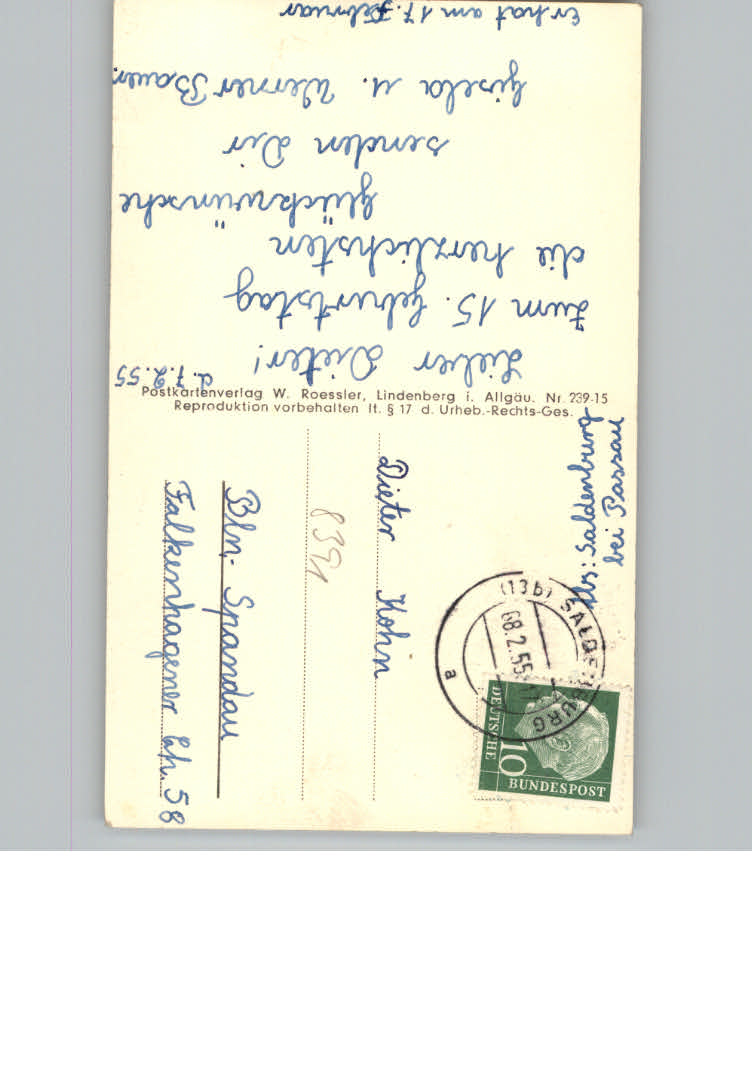 d. 7.2.55
Lieber Dieter!
zum 15. Geburtstag
die herzlichsten
Glückwünsche
senden Dir
Gisela u. Werner Bauer.
Er hat am 17. Februar
Postkartenverlag W. Roessler, Lindenberg i. Allgäu. Nr. 239-15
Reproduktion vorbehalten lt. § 17 d. Urheb.-Rechts-Ges.
Abs: Saldenburg
bei Passau
(13b) SALDENBURG
08.2.55
a
DEUTSCHE
10
BUNDESPOST
Dieter Kohn
8391
Bln.- Spandau
Falkenhagener Ch. 58